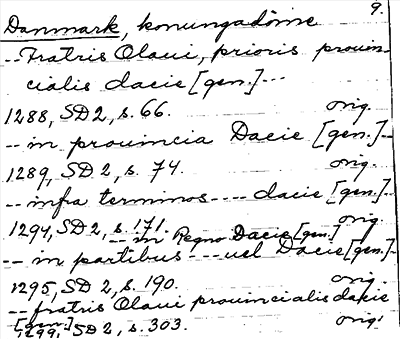 9.
Danmark, konungadöme
-- Fratris Olaui, prioris prouin-
cialis dacie [gen.] ---
1288, SD 2, s. 66. orig.
-- in prouincia Dacie [gen.] --
1289, SD 2, s. 74. orig.
-- infra terminos ---- dacie [gen.] --
orig.
1294, SD 2, s. 171.
-- in Regno Dacie [gen.]
-- in partibus --- uel Dacie [gen.] --
1295, SD 2, s. 190. orig.
-- fratris Olaui prouincialis dacie
[gen.]
1299, SD 2, s. 303. orig.